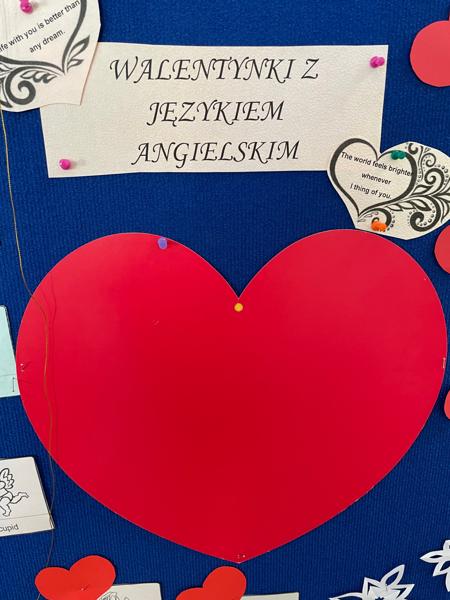 life with you is better than
any dream.
WALENTYNKI Z
JĘZYKIEM
ANGIELSKIM
The world feels brighter
whenever
I thing of you.
cupid